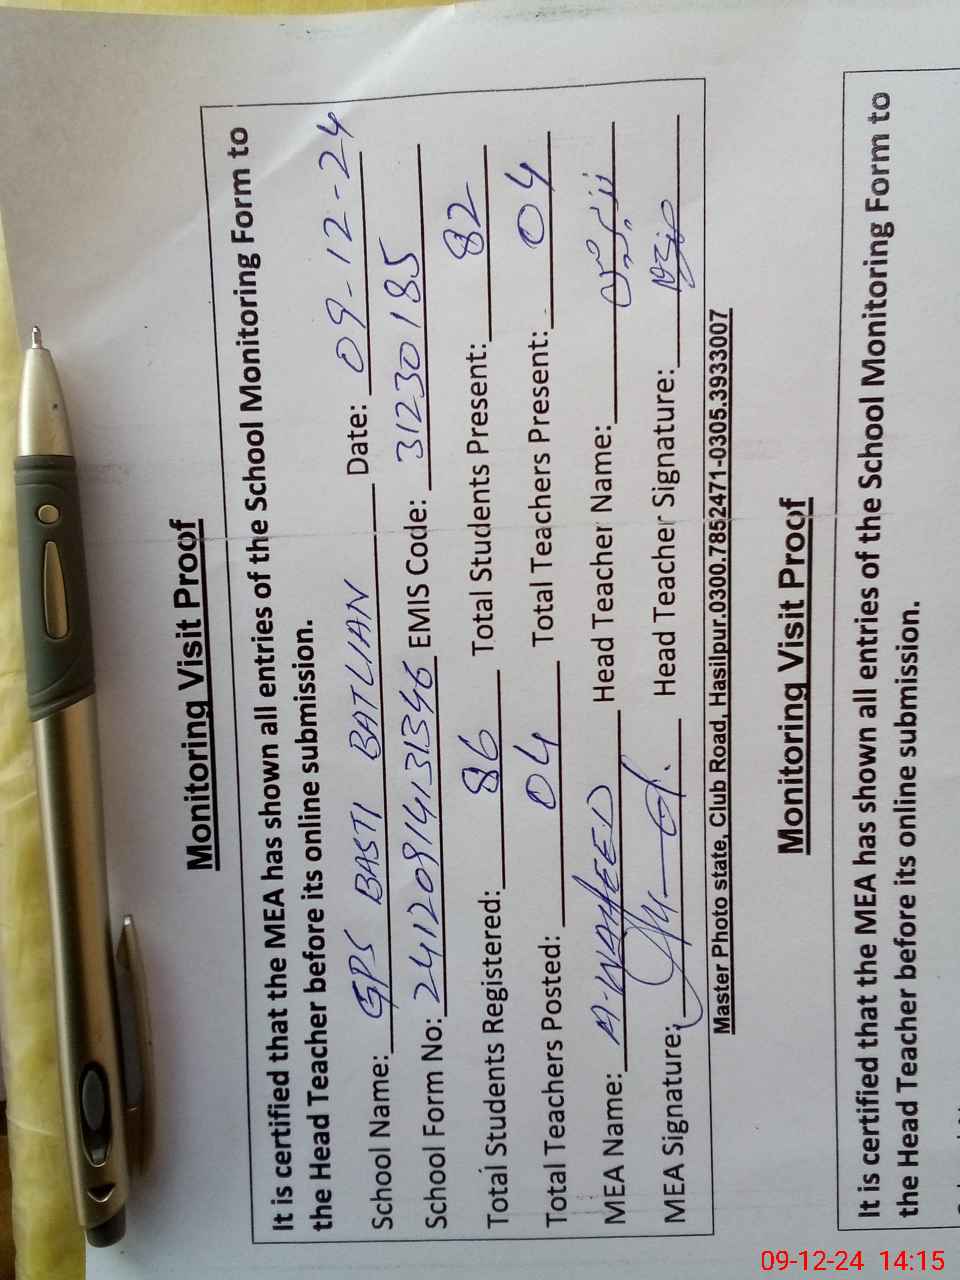 Monitoring Visit Proof
It is certified that the MEA has shown all entries of the School Monitoring Form to
the Head Teacher before its online submission.
School Name: GPS BASTI BATLIAN Date: 09-12-24
School Form No: 24120914131346 EMIS Code: 31230185
Total Students Registered: 86 Total Students Present: 82
Total Teachers Posted: 04 Total Teachers Present: 04
MEA Name: A-WAHEED Head Teacher Name:
MEA Signature: Head Teacher Signature:
Master Photo state, Club Road, Hasilpur.0300.7852471-0305.3933007
Monitoring Visit Proof
It is certified that the MEA has shown all entries of the School Monitoring Form to
the Head Teacher before its online submission.
09-12-24 14:15